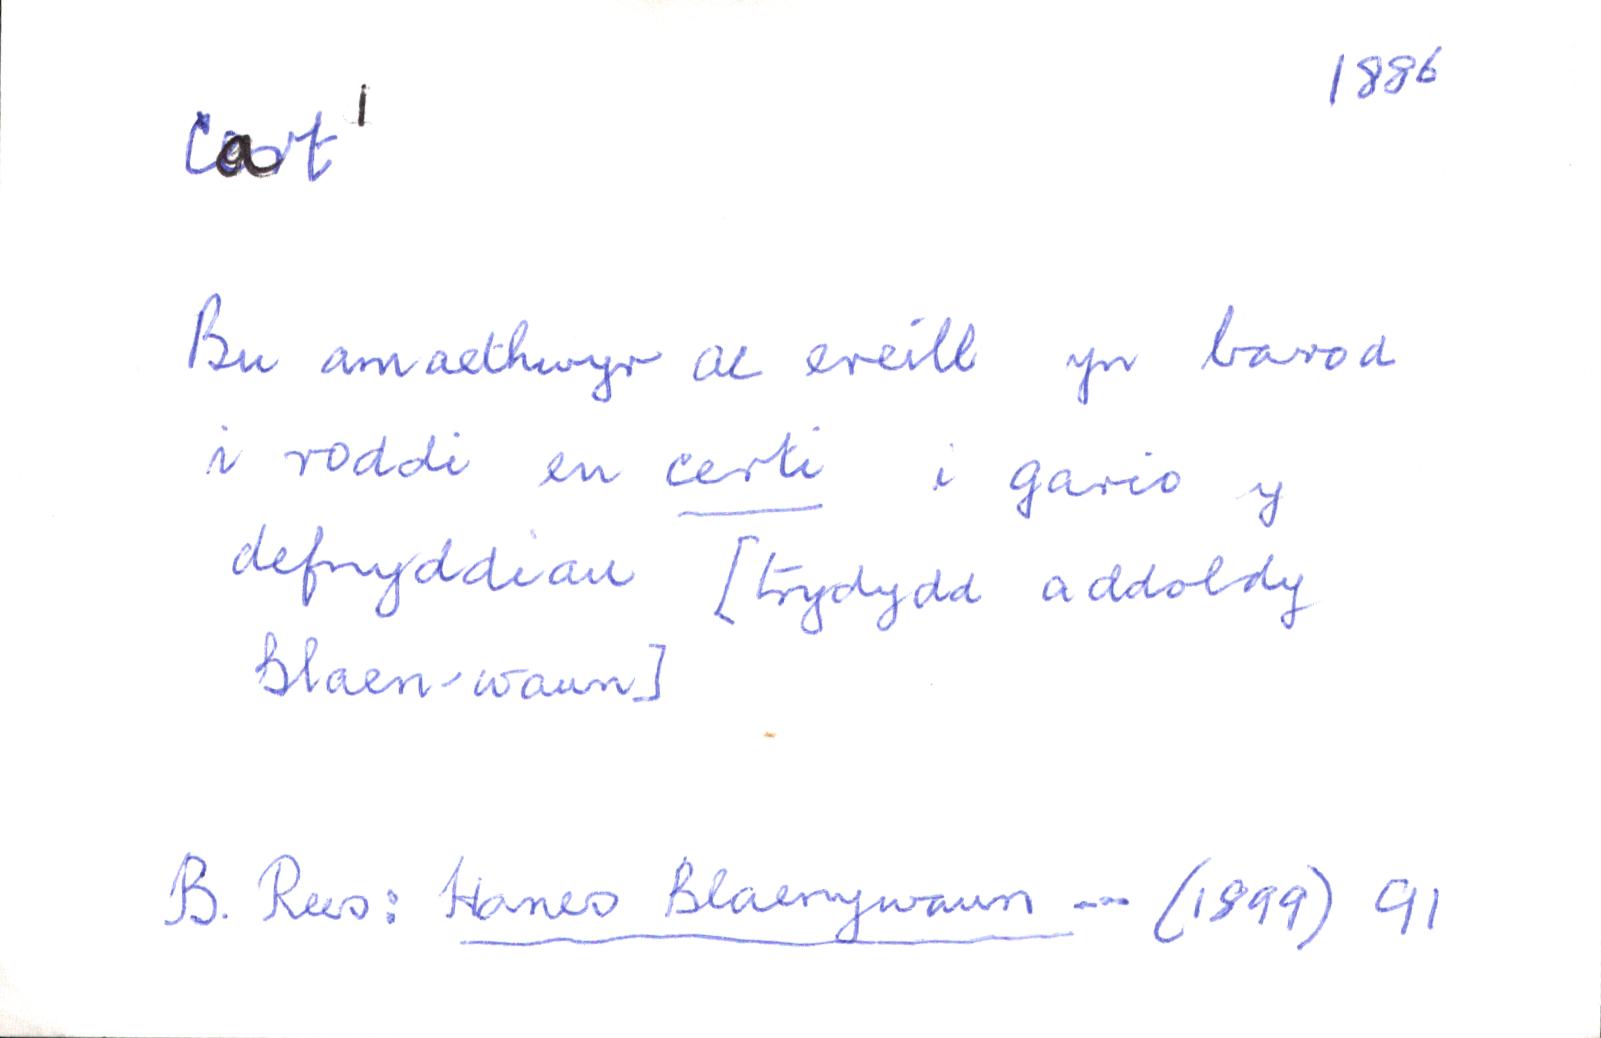 1886
Cart¹
Bu amaethwyr ac ereill yn barod
i roddi eu certi i gario y
defnyddiau [trydydd addoldy
Blaen-waun]
B. Rees: Hanes Blaenywaun --- (1899) 91